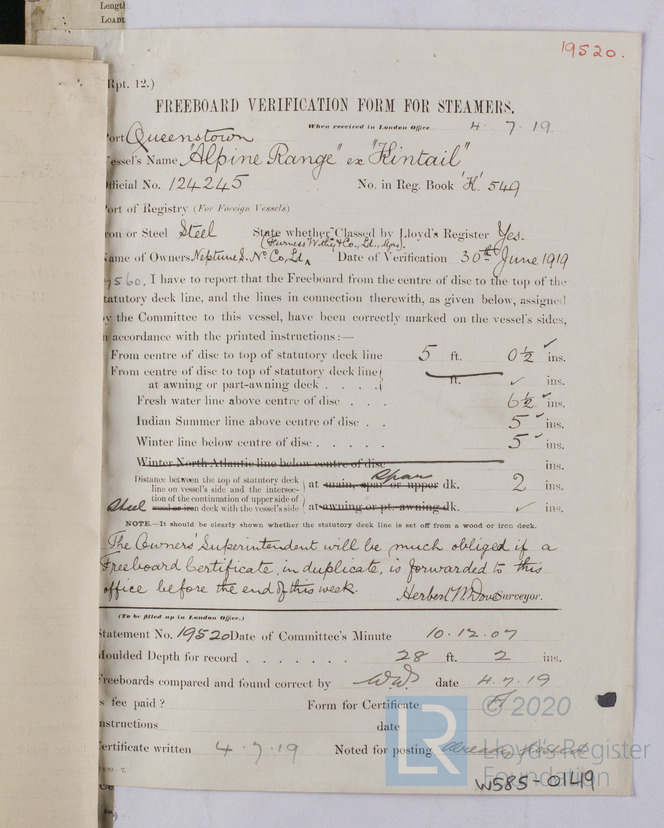 Length
LOADL
19520.
Rpt. 12.)
FREEBOARD VERIFICATION FORM FOR STEAMERS.
When received in London Office 4. 7. 19
ort Queenstown
essel's Name "Alpine Range" ex "Kintail"
fficial No. 124245 No. in Reg. Book 'K' 549
ort of Registry (For Foreign Vessels)
ron or Steel Steel State whether Classed by Lloyd's Register Yes.
(Furness Withy & Co., Ld., Mgrs).
ame of Owners Neptune S. Nn Co, Ld, Date of Verification 30th June 1919
560, I have to report that the Freeboard from the centre of disc to the top of the
tatutory deck line, and the lines in connection therewith, as given below, assigned
y the Committee to this vessel, have been correctly marked on the vessel's sides,
n accordance with the printed instructions:—
From centre of disc to top of statutory deck line 5 ft. 0½ ins.
From centre of disc to top of statutory deck line
at awning or part-awning deck . . . . ft. ins.
Fresh water line above centre of disc . . . 6½ ins.
Indian Summer line above centre of disc . . 5 ins.
Winter line below centre of disc . . . . . 5 ins.
Winter North Atlantic line below centre of disc ins.
Distance between the top of statutory deck
line on vessel's side and the intersec-
tion of the continuation of upper side of
Steel wood or iron deck with the vessel's side
Spar
at main, spar or upper dk. 2 ins.
at awning or pt. awning dk. ins.
NOTE.—It should be clearly shown whether the statutory deck line is set off from a wood or iron deck.
The Owners' Superintendent will be much obliged if a
Freeboard Certificate, in duplicate, is forwarded to this
office before the end of this week.
Herbert N. Dove Surveyor.
(To be filled up in London Office.)
tatement No. 19520 Date of Committee's Minute 10.12.07
oulded Depth for record . . . . . . . 28 ft. 2 ins.
reeboards compared and found correct by W.W. date 4.7.19
s fee paid ? Form for Certificate
nstructions date
ertificate written 4.7.19 Noted for posting already posted
© 2020
LR
Lloyd's Register
Foundation
W585-0149